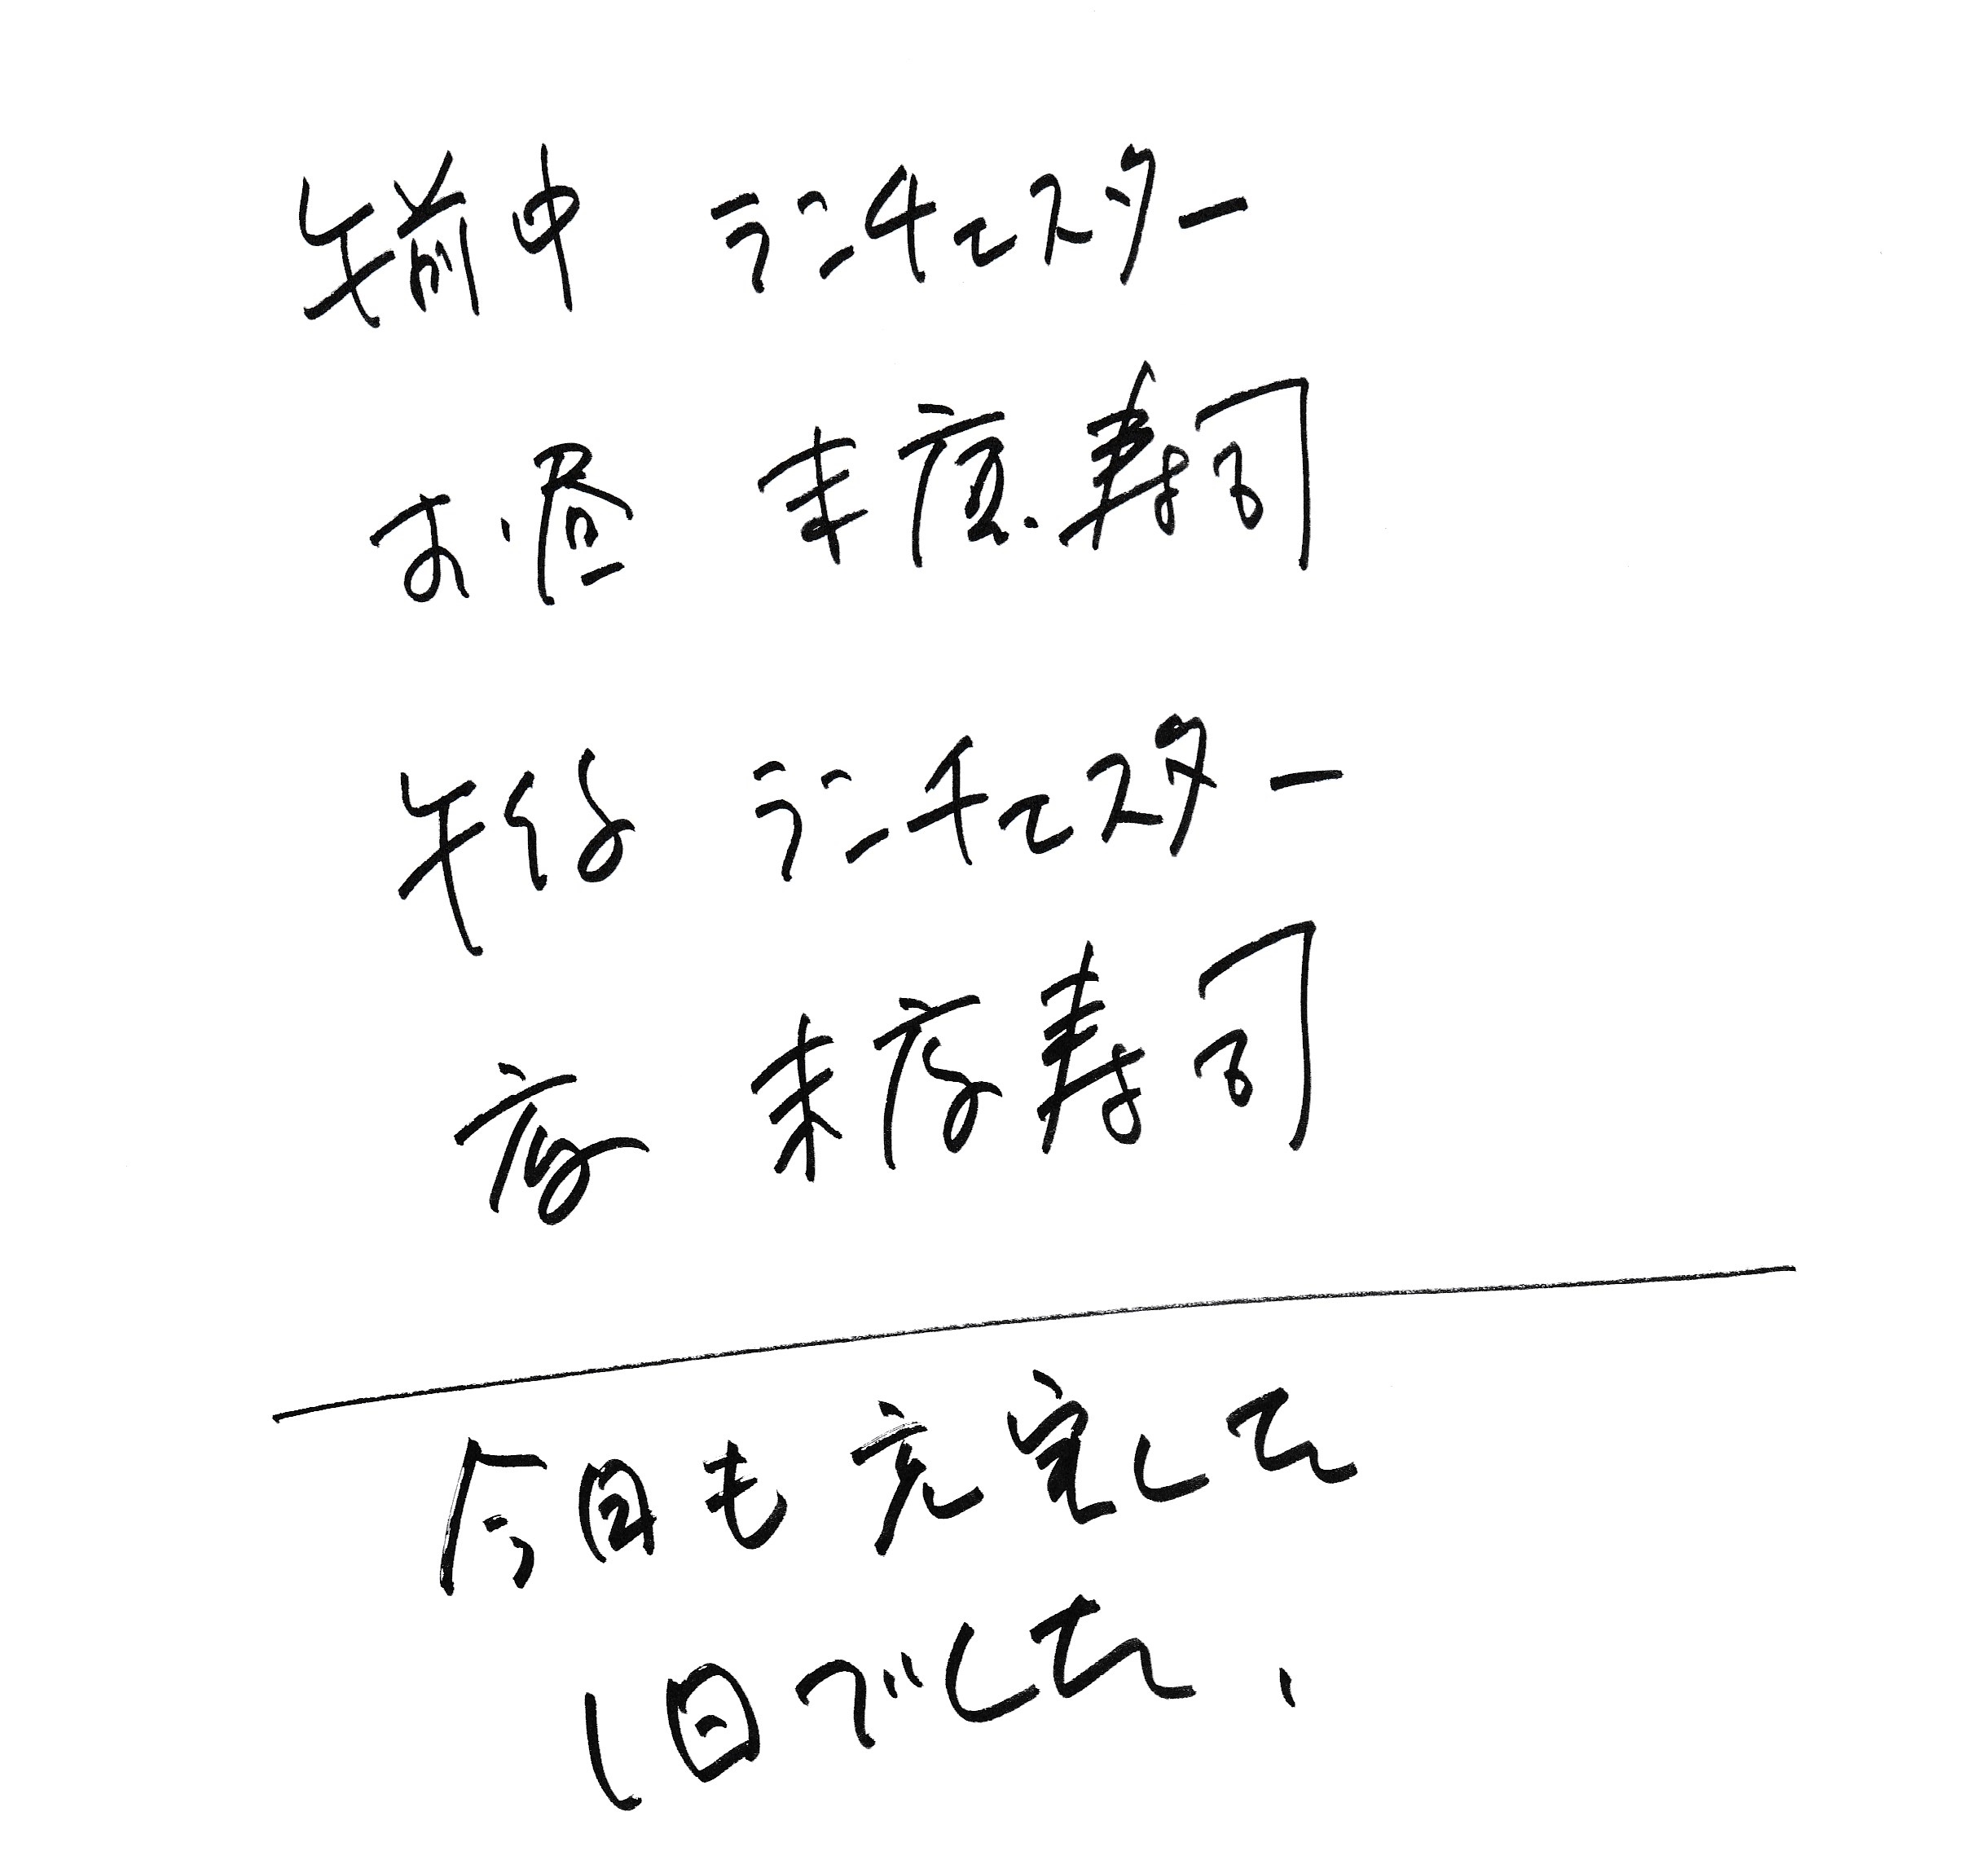 午前中 ランチェスター
お昼 末廣寿司
午後 ランチェスター
夜 末広寿司
今日も充実した
1日でした、